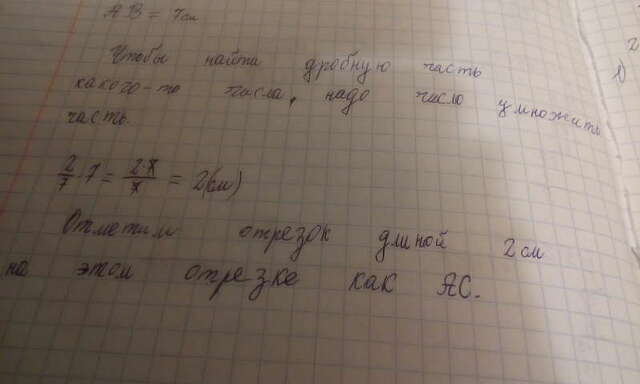 AB = 7см
Чтобы найти дробную часть
какого-то числа, надо число умножить
часть.
2/7 · 7 = 2·7/7 = 2(см)
Отметим отрезок длиной 2см
на этом отрезке как AC.